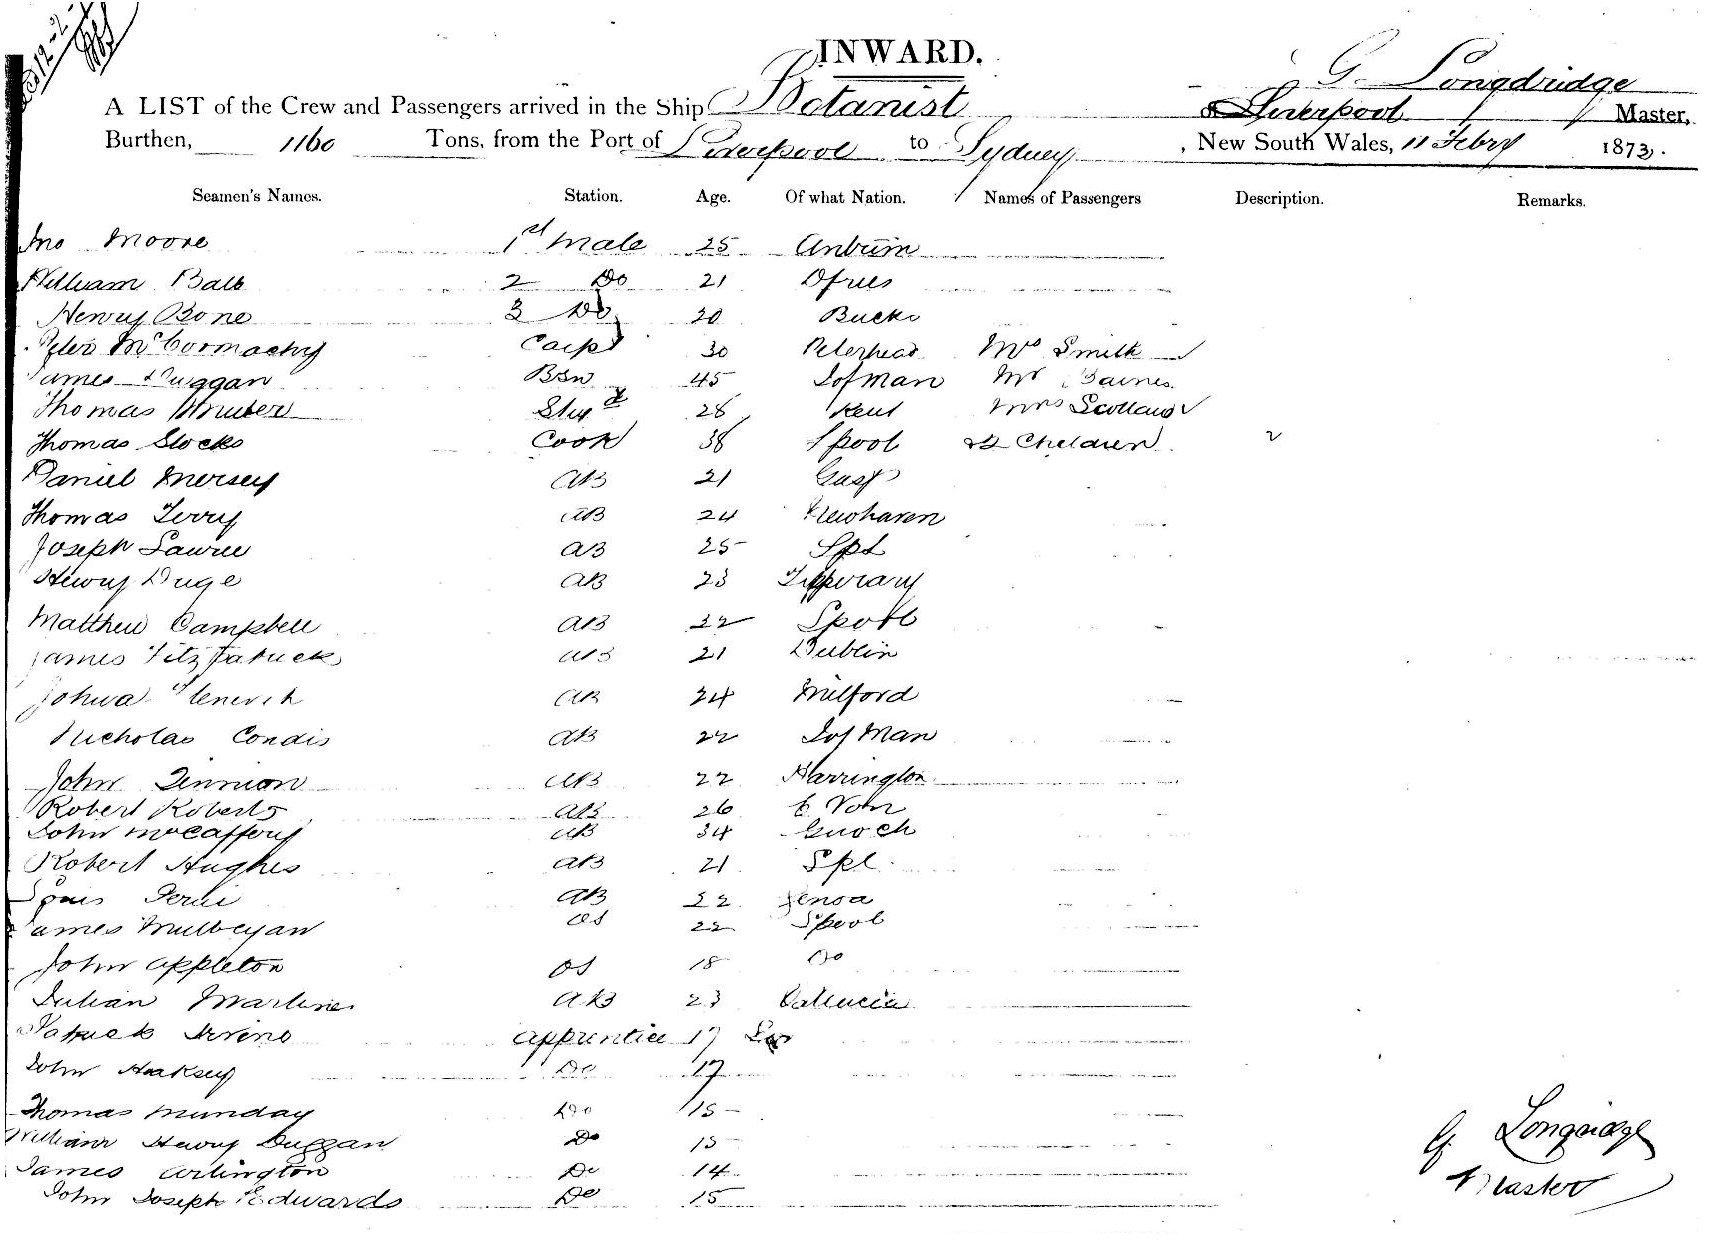 INWARD.
G Longdridge
A LIST of the Crew and Passengers arrived in the Ship Botanist of Liverpool Master,
Burthen, 1160 Tons, from the Port of Liverpool to Sydney, New South Wales, 11 Febry 1873.
Seamen's Names. Station. Age. Of what Nation. Names of Passengers Description. Remarks.
Jno Moore 1st Mate 25 Antrim
William Ball 2 Do 21 Dfries
Henry Bone 3 Do 20 Bucks
Peter McCormachy Carpt 30 Peterhead Mrs Smith
James Duggan Bsn 45 I of Man Mr Baines
Thomas Stwd 28 Kent Mrs Scotland
Thomas Stocks Cook 38 Lpool & 2 Children
Daniel Mersey AB 21
Thomas Terry AB 24 Newhaven
Joseph Lawrie AB 25 Lpl
Henry Duge AB 23 Tipperary
Matthew Campbell AB 22 Lpool
James Fitzpatrick AB 21 Dublin
AB 24 Milford
Nicholas Condis AB 22 I of Man
John Tinnion AB 22 Harrington
Robert Roberts AB 26
John McCaffery AB 34
Robert Hughes AB 21 Lpl.
Louis AB 22 Genoa
James OS 22 Lpool
John Appleton OS 18 Do
Julian Martines AB 23
Patrick apprentice 17
John Do 17
Thomas Munday Do 15
William Henry Duggan Do 15
James Arlington Do 14
John Joseph Edwards Do 15
G Longridge
Master